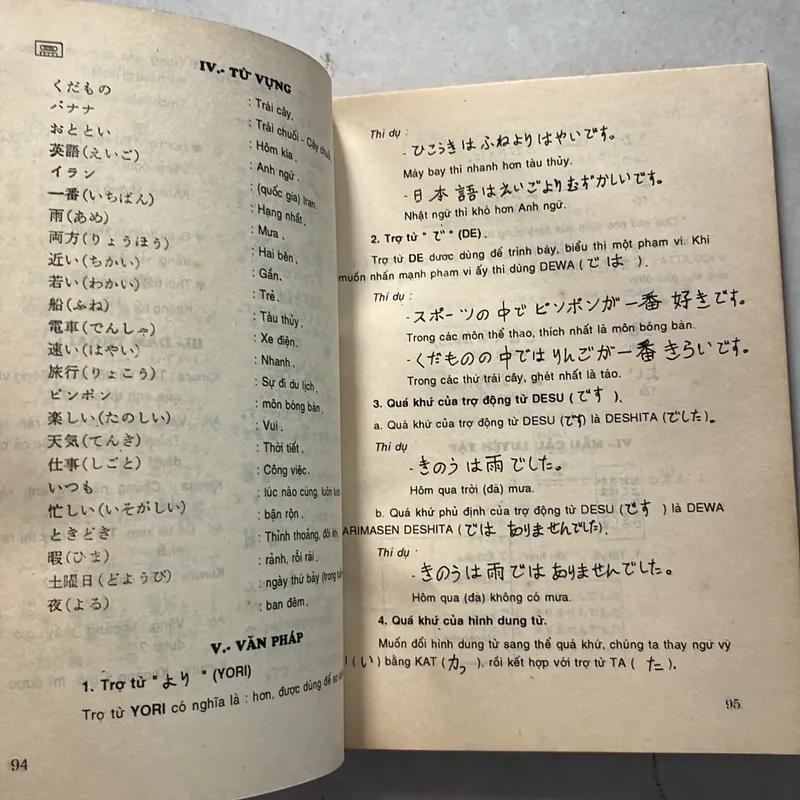 IV.- TỪ VỰNG
くだもの : Trái cây.
バナナ : Trái chuối - Cây chuối
おととい : Hôm kia.
英語(えいご) : Anh ngữ.
イラン : (quốc gia) Iran.
一番(いちばん) : Hạng nhất.
雨(あめ) : Mưa.
両方(りょうほう) : Hai bên.
近い(ちかい) : Gần.
若い(わかい) : Trẻ.
船(ふね) : Tàu thủy.
電車(でんしゃ) : Xe điện.
速い(はやい) : Nhanh.
旅行(りょこう) : Sự đi du lịch.
ピンポン : môn bóng bàn.
楽しい(たのしい) : Vui.
天気(てんき) : Thời tiết.
仕事(しごと) : Công việc.
いつも : lúc nào cũng, luôn luôn
忙しい(いそがしい) : bận rộn.
ときどき : Thỉnh thoảng, đôi khi.
暇(ひま) : rảnh, rỗi rãi.
土曜日(どようび) : ngày thứ bảy (trong
夜(よる) : ban đêm.
V.- VĂN PHÁP
1. Trợ từ " より " (YORI)
Trợ từ YORI có nghĩa là : hơn, được dùng để so
94
Thí dụ :
- ひこうきは ふねより はやいです。
Máy bay thì nhanh hơn tàu thủy.
- 日本語は えいごより むずかしいです。
Nhật ngữ thì khó hơn Anh ngữ.
2. Trợ từ " で " (DE).
Trợ từ DE dược dùng để trình bày, biểu thị một phạm vi. Khi
muốn nhấn mạnh phạm vi ấy thì dùng DEWA ( では ).
Thí dụ :
- スポーツの 中で ピンポンが 一番 好きです。
Trong các môn thể thao, thích nhất là môn bóng bàn.
- くだものの 中では りんごが 一番 きらいです。
Trong các thứ trái cây, ghét nhất là táo.
3. Quá khứ của trợ động từ DESU ( です ).
a. Quá khứ của trợ động từ DESU (です) là DESHITA (でした).
Thí dụ
- きのうは 雨でした。
Hôm qua trời (đã) mưa.
b. Quá khứ phủ định của trợ động từ DESU ( です ) là DEWA
ARIMASEN DESHITA (では ありませんでした).
Thí dụ :
- きのうは 雨では ありませんでした。
Hôm qua (đã) không có mưa.
4. Quá khứ của hình dung từ.
Muốn đổi hình dung từ sang thể quá khứ, chúng ta thay ngữ vỹ
I ( い ) bằng KAT ( かっ ), rồi kết hợp với trợ từ TA ( た ).
95